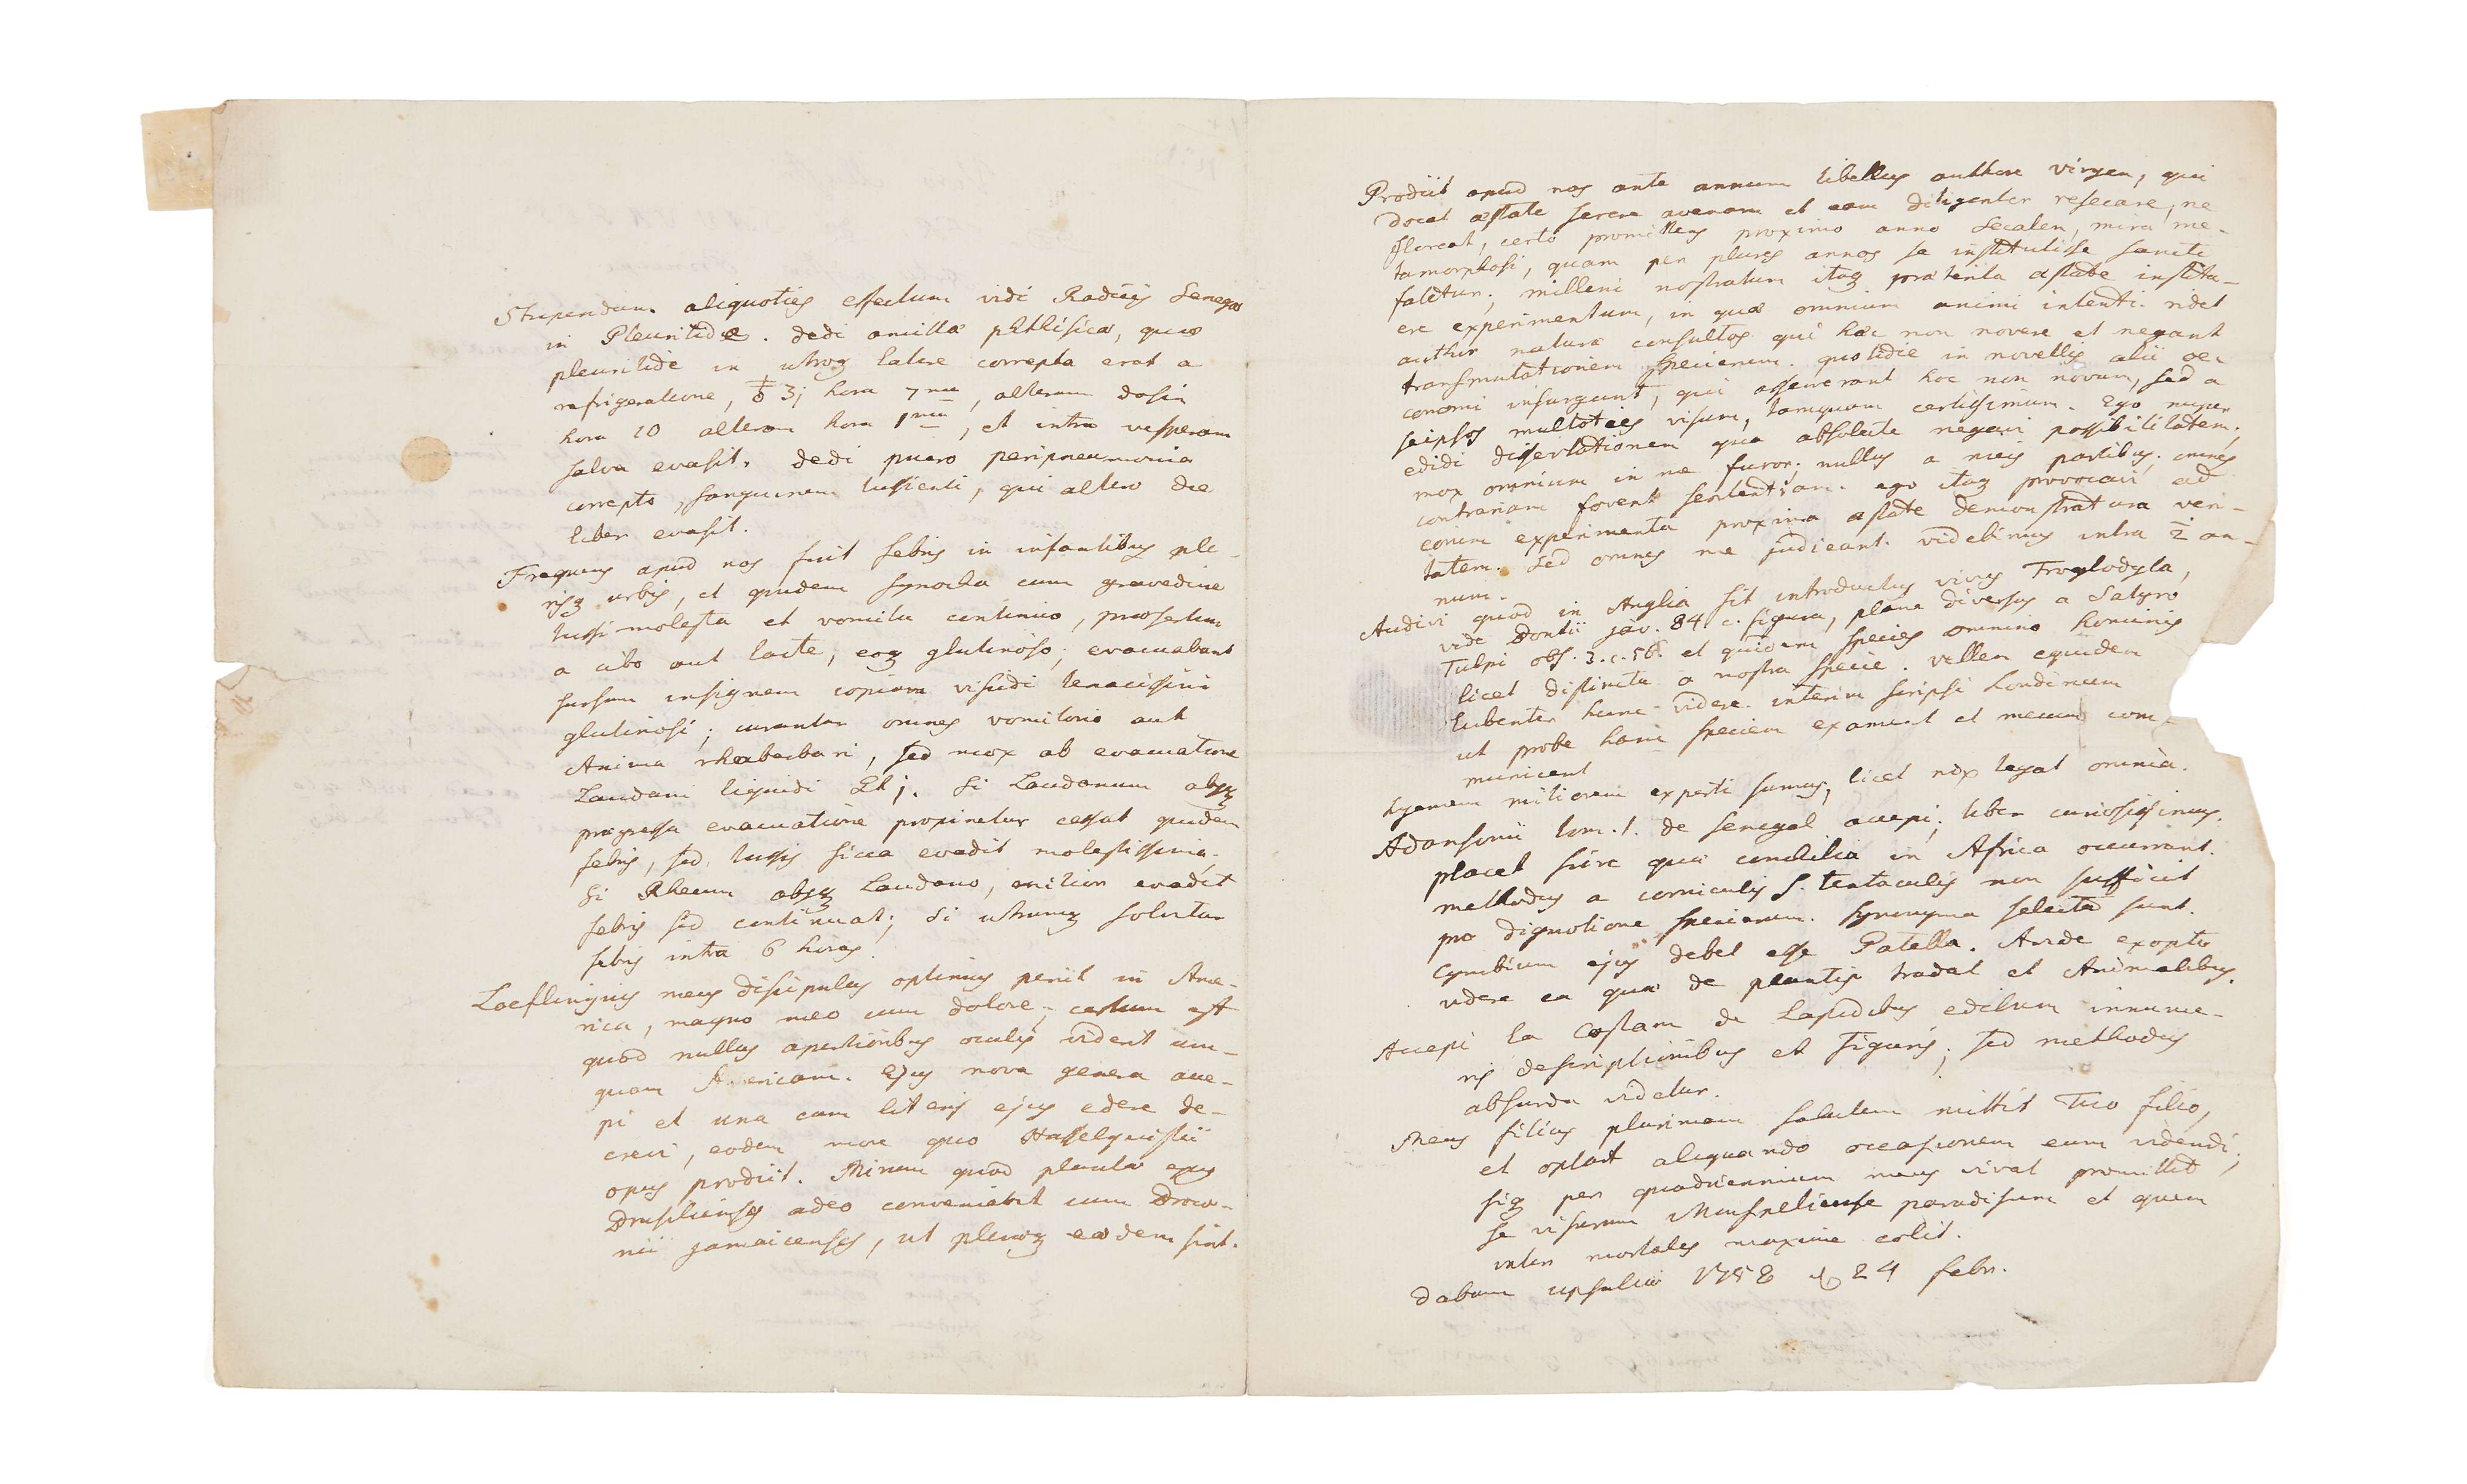 Stupendum aliquoties effectum vidi Radicis Senegæ
in Pleuritide. dedi ancillæ phthisicæ, quæ
pleuritide in utroqꝫ latere correpta erat a
refrigeratione, ʒj hora 7ma, alteram dosin
hora 10 alteram hora 1ma, et intra vesperam
salva evasit. dedi puero peripneumonia
correpto, sanguinem tussienti, qui altero die
liber evasit.
Frequens apud nos fuit febris in infantibus ple-
risqꝫ urbis, et quidem synocha cum gravedine
tussi molesta et vomitu continuo, præsertim
a cibo aut lacte, eoqꝫ glutinoso; evacuabant
sursum insignem copiam viscidi tenacissimi
glutinosi; curantur omnes vomitorio aut
Anima rhabarbari, sed mox ab evacuatione
Laudani liquidi j. si Laudanum absqꝫ
prægressa evacuatione propinetur cessat quidem
febris, sed tussis sicca evadit molestissima;
si Rheum absqꝫ Laudano, mitior evadit
febris sed continuat; si utrumqꝫ solvitur
febris intra 6 horas.
Loeflingius meus discipulus optimus periit in Ame-
rica, magno meo cum dolore; certum est
quod nullus apertioribus oculis viderit um-
quam Americam. Ejus nova genera acce-
pi et una cum literis ejus edere de-
crevi, eodem more quo Hasselquistii
opus prodiit. Mirum quod plantæ ejus
Brasilienses adeo conveniebat cum Brow-
nii jamaicenses, ut pleræqꝫ eædem sint.
Prodiit apud nos ante annum libellus authore virgen, qui
docet æstate serere avenam et eam diligenter resecare, ne
floreat, certo promittens proximo anno secalen, mira me-
tamorphosi, quam per plures annos se instituisse sancte
fatetur; milleni nostratum itaqꝫ præterita æstate institu-
ere experimentum, in quæ omnium animi intenti. ridet
author naturæ consultos qui hæc non novere et negant
transmutationem specierum. quotidie in novellis alii oec
conomi insurgunt, qui asseverant hoc non novum, sed a
seipsos multoties visum, tamquam certissimum. Ego nuper
edidi dissertationem qua absolute negavi possibilitatem;
mox omnium in me furor; nullus a meis partibus; omnes
contrariam fovent sententiam. ego itaqꝫ provocavi ad
eorum experimenta proxima æstate demonstratura veri-
tatem. sed omnes me judicant. videbimus intra ½ an-
num.
Audivi quod in Anglia sit introductus vivus Troglodyta,
vide Bontii jav. 84. c. figura, plane diversus a Satyro
Tulpi obs. 3. c. 56. et quidem species omnino hominis
licet distincta a nostra specie. vellem equidem
lubenter hunc videre. interim scripsi Londinum
ut probe hanc speciem examinent et mecum com-
municent
hyemem mitiorem experti sumus, licet nix tegat omnia.
Adansonii tom. 1. de Senegal accepi; liber curiosissimus.
placet scire quæ conchilia in Africa occurrant.
methodus a corniculis s. tentaculis non sufficit
pro dignotione specierum. synonyma selecta sunt.
Cymbium ejus debet esse Patella. Avide exopto
videre ea quæ de plantis tradat et Animalibus.
Accepi la Costam de Lapidibus editum innume-
ris descriptionibus et figuris; sed methodus
absurda videtur.
Meus filius plurimam salutem mittit Tuo filio,
et optat aliquando occasionem eum videndi;
siqꝫ per quadriennium meus vivat promittit
se visurum Monspeliense paradisum et quem
inter mortales maxime colit.
Dabam upsaliæ 1758 d. 24 febr.